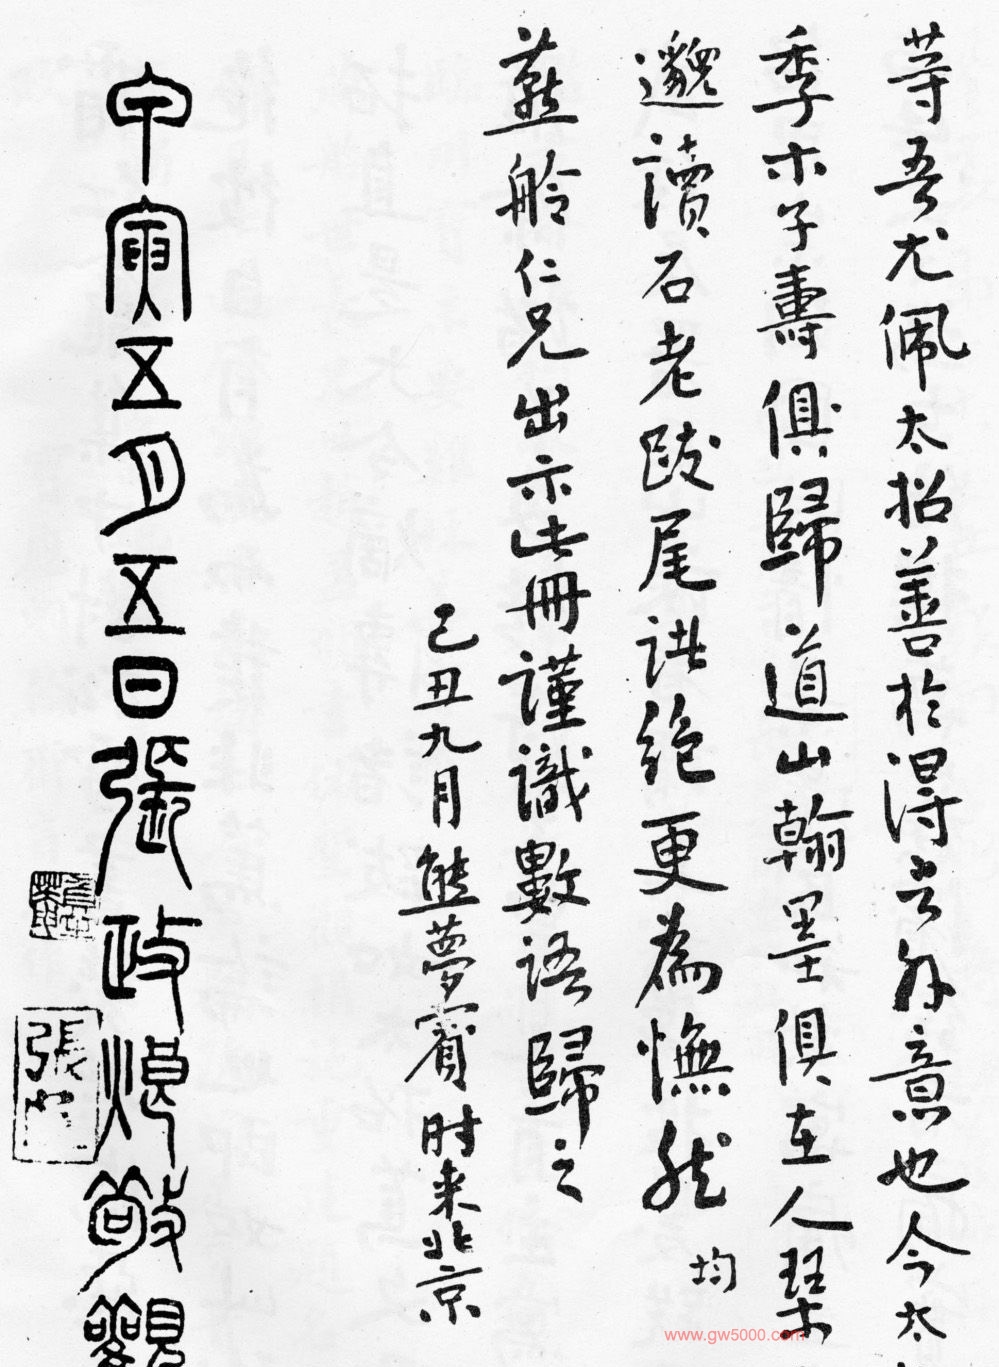 等吾尤佩太招善於得言外意也今太
季木子壽俱歸道山翰墨俱在人琴
邈讀石老跋尾訨絶更為憮然 均
燕舲仁兄出示此冊謹識數語歸之
己丑九月熊夢賓時来北京
甲寅五月五日張政烺敬觀
www.gw5000.com